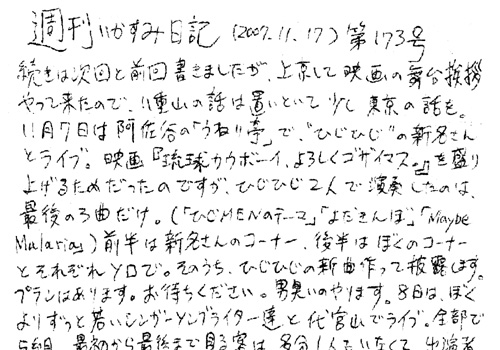 週刊いかすみ日記 (2007.11.17) 第173号
続きは次回と前回書きましたが、上京して映画の舞台挨拶
やって来たので、八重山の話は置いといて少し東京の話を。
11月7日は阿佐谷の「うねり亭」で、"ひじひじ"の新名さん
とライブ。映画『琉球カウボーイ、よろしくゴザイマス。』を盛り
上げるためだったのですが、ひじひじ2人で演奏したのは、
最後の3曲だけ。(「ひじMENのテーマ」「よだきんぼ」「Maybe
Malaria」) 前半は新名さんのコーナー、後半はぼくのコーナー
とそれぞれソロで。そのうち、ひじひじの新曲作って披露します。
プランはあります。お待ちください。男臭いのやります。8日は、ぼく
よりずっと若いシンガーソングライター達と代官山でライブ。全部で
5組。最初から最後まで見る客は、多分1人もいなくて、出演者